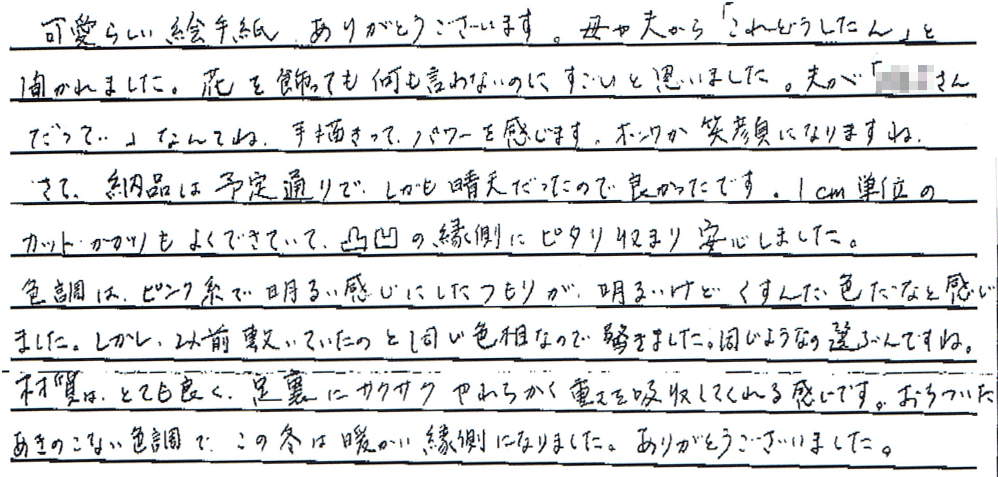 可愛らしい絵手紙、ありがとうございます。母や夫から「これどうしたん」と
聞かれました。花を飾っても何も言わないのにすごいと思いました。夫が「さん
だって…」なんてね。手描きって、パワーを感じます。ホンワカ笑顔になりますね。
さて、納品は予定通りで、しかも晴天だったので良かったです。1cm単位の
カット・かがりもよくできていて、凸凹の縁側にピタリ収まり安心しました。
色調は、ピンク系で明るい感じにしたつもりが、明るいけどくすんだ色だなと感じ
ました。しかし、以前敷いていたのと同じ色相なので驚きました。同じようなの選ぶんですね。
材質は、とても良く、足裏にサクサクやわらかく重さを吸収してくれる感じです。おちついた
あきのこない色調で、この冬は暖かい縁側になりました。ありがとうございました。